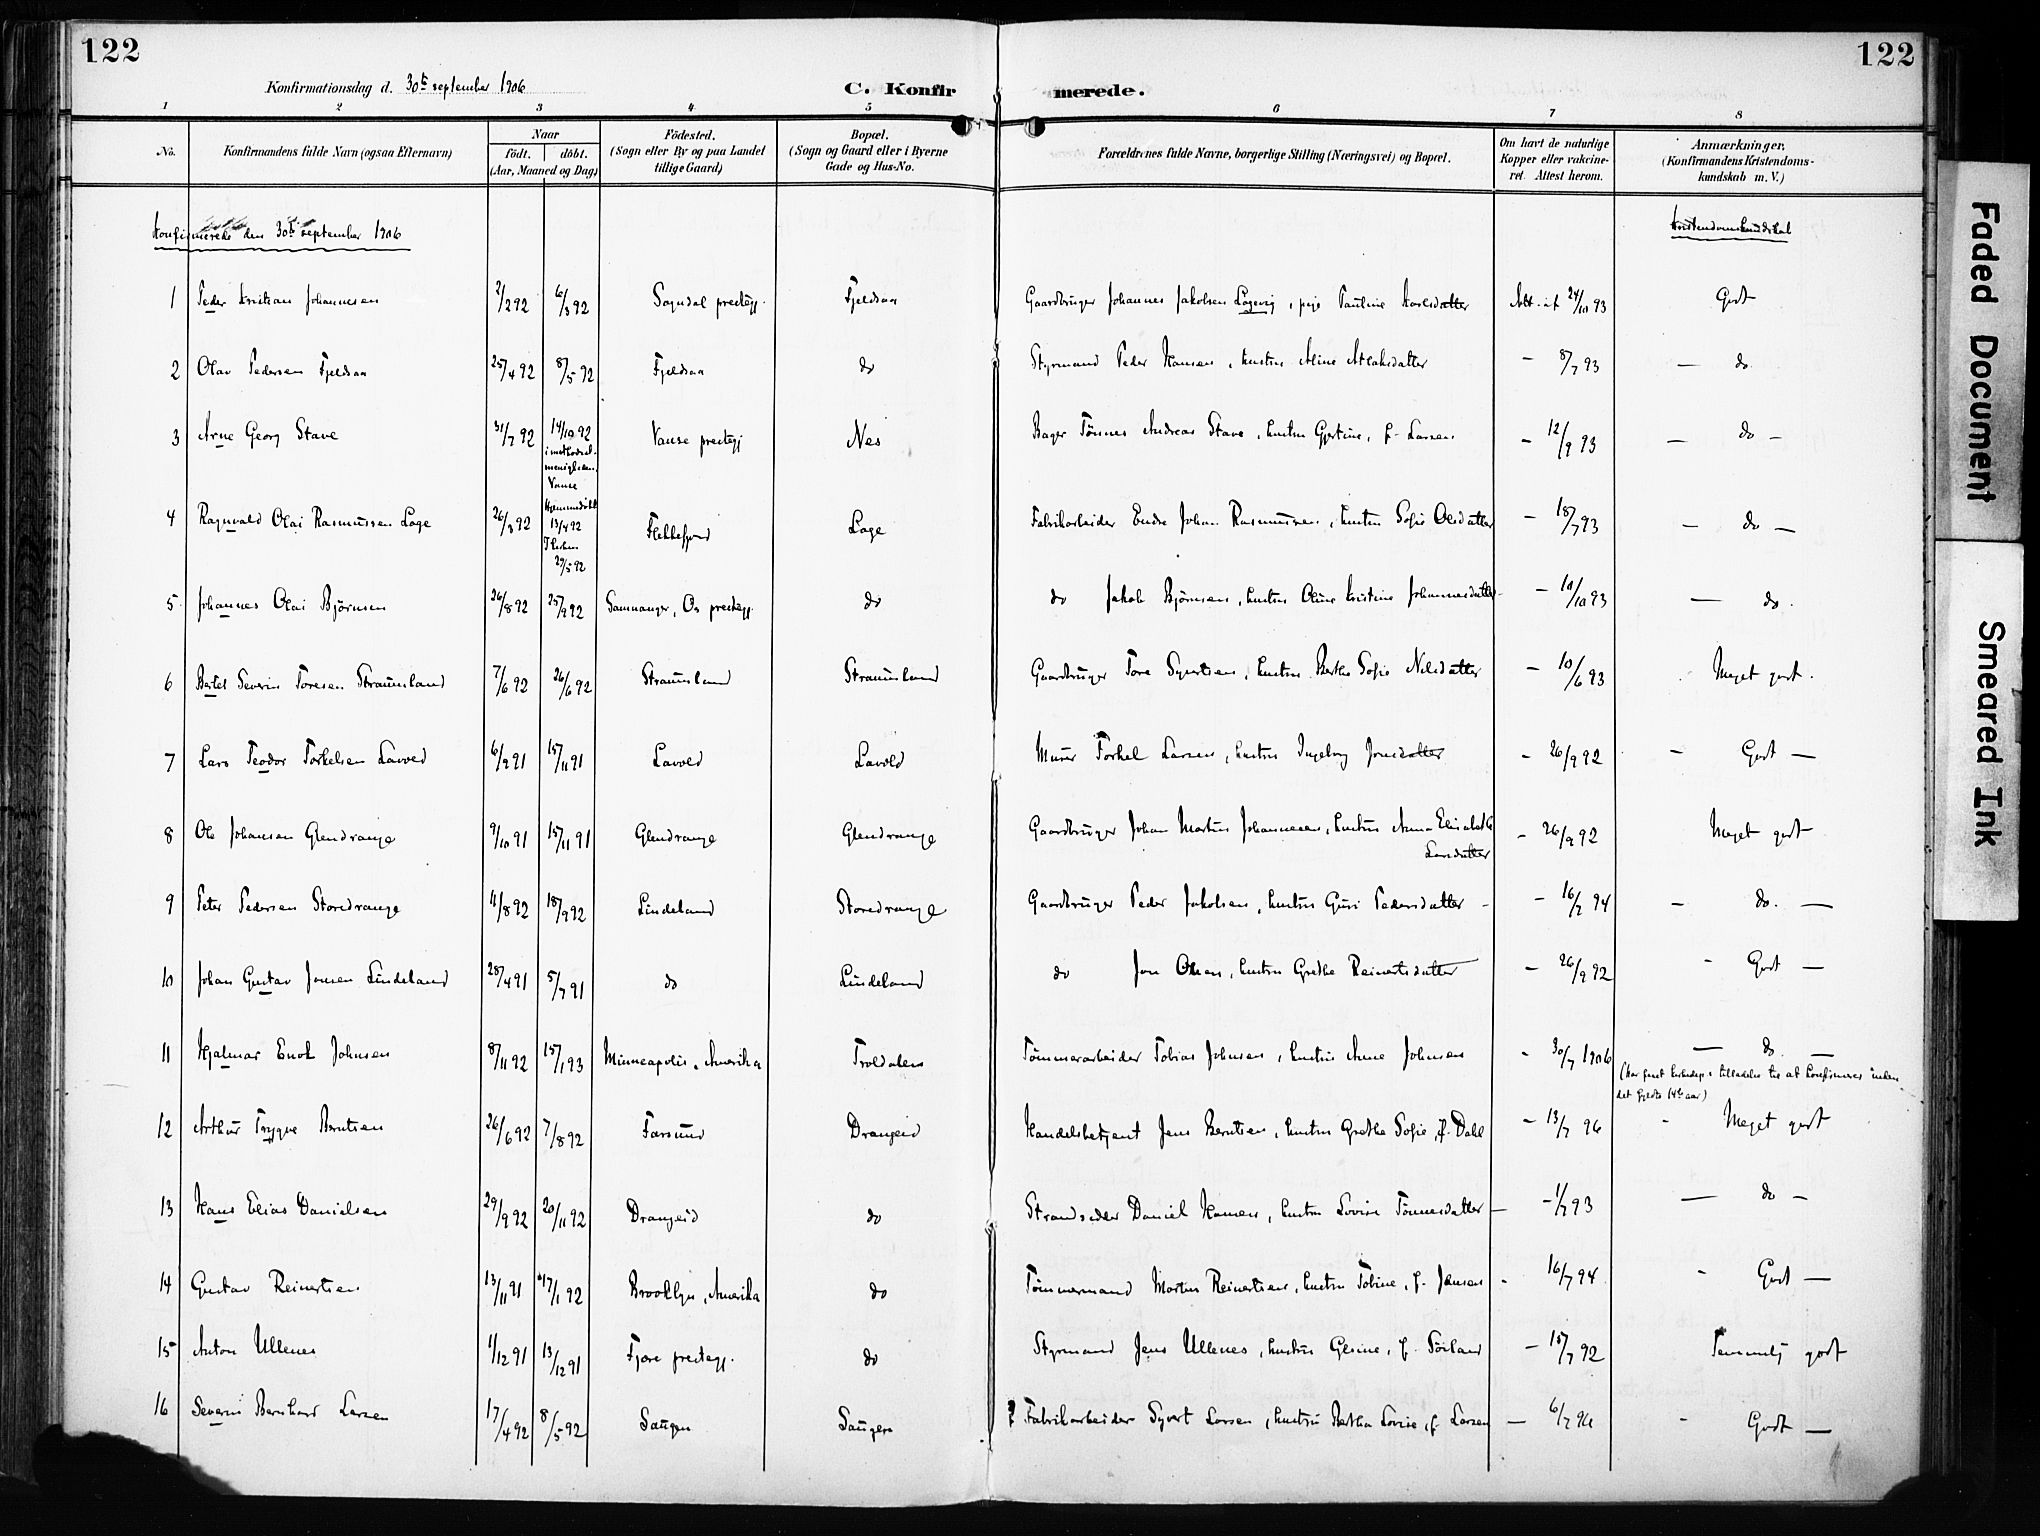 122
122
Konfirmationsdag d. 30te september 1906
C. Konfirmerede.
1 2 3 4 5 6 7 8
No. Konfirmandens fulde Navn (ogsaa Efternavn) Naar födt. döbt. (Aar, Maaned og Dag) Födested. (Sogn eller By og paa Landet tillige Gaard) Bopæl. (Sogn og Gaard eller i Byerne Gade og Hus-No. Forældrenes fulde Navne, borgerlige Stilling (Næringsvei) og Bopæl. Om havt de naturlige Kopper eller vakcineret. Attest herom. Anmerkninger. (Konfirmandens Kristendomskundskab m. V.)
Konfirmerede den 30te september 1906 Kristendomskundskab
1 Peder Kristian Johannesen 2/2 92 6/3 92 Sogndal prestegj. Fjeldsaa Gaardbruger Johannes Jakobsen Løgevig, pige Pauline Karlsdatter Att. af 24/10 93 Godt
2 Olav Pedersen Fjeldsaa 25/4 92 8/5 92 Fjeldsaa do Styrmand Peder Hansen, hustru Aline Atlaksdatter — 8/7 93 — do.
3 Arne Georg Stave 31/7 92 14/10 92 i methodist-menigheden Vanse Vanse prestegj Nes Bager Tønnes Andreas Stave, hustru Gjertine, f. Larsen — 12/9 93 — do —
4 Ragnvald Olai Rasmussen Loge 26/3 92 Hjemmedøbt 13/4 92 29/5 92 Flekkefjord Loge Fabrikarbeider Endre Johan Rasmussen, hustru Sofie Olsdatter — 18/7 93 — do —
5 Johannes Olai Bjørnsen 26/8 92 25/9 92 Samnanger, Os prestegj. do do Jakob Bjørnsen, hustru Oline Kristine Johannesdatter — 10/10 93 — do.
6 Bertel Severin Toresen Straumland 7/6 92 26/6 92 Straumland Straumland Gaardbruger Tore Syvertsen, hustru Berthe Sofie Nilsdatter — 10/6 93 Meget godt.
7 Lars Teodor Torkelsen Lavold 6/9 91 15/11 91 Lavold Lavold Murer Torkel Larsen, hustru Ingeborg Jonsdatter — 26/9 92 — Godt —
8 Ole Johansen Glendrange 9/10 91 15/11 91 Glendrange Glendrange Gaardbruger Johan Martin Johannesen, hustru Anna Elisabeth Larsdatter — 26/9 92 Meget godt
9 Peter Pedersen Storedrange 11/8 92 18/9 92 Lindeland Storedrange Gaardbruger Peder Jakobsen, hustru Guri Pedersdatter — 16/7 94 — do. —
10 Johan Gustav Jonsen Lindeland 28/4 91 5/7 91 do Lindeland do Jon Olsen, hustru Grethe Reinertsdatter — 26/9 92 - Godt —
11 Hjalmar Enok Johnsen 8/11 92 15/1 93 Minneapolis, Amerika Troldalen Tømmerarbeider Tobias Johnsen, hustru Anne Johnsen - 30/7 1906 — do —
(Har faaet tilladelse til at konfirmeres inden det fyldte 14de aar)
12 Arthur Trygve Berntsen 26/6 92 7/8 92 Farsund Drangeid Handelsbetjent Jens Berntsen, hustru Grethe Sofie, f. Dahl — 13/7 96 - Meget godt
13 Hans Elias Danielsen 29/9 92 20/11 92 Drangeid do Strandsidder Daniel Hansen, hustru Lovise Tønnesdatter — 1/7 93 — do —
14 Gustav Reinertsen 13/11 91 17/1 92 Brooklyn, Amerika do Tømmermand Martin Reinertsen, hustru Tobine, f. Jansen - 16/7 94 - Godt —
15 Anton Ullenes 1/12 91 13/12 91 Fjære prestegj. do Styrmand Jens Ullenes, hustru Gesine, f. Sørland — 15/7 92 Temmelig godt
16 Severin Bernhard Larsen 17/4 92 8/5 92 Saugen Saugen Fabrikarbeider Syvert Larsen, hustru Bertha Lovise, f. Larsen — 6/7 94 - Godt —
Faded Document
Smeared Ink